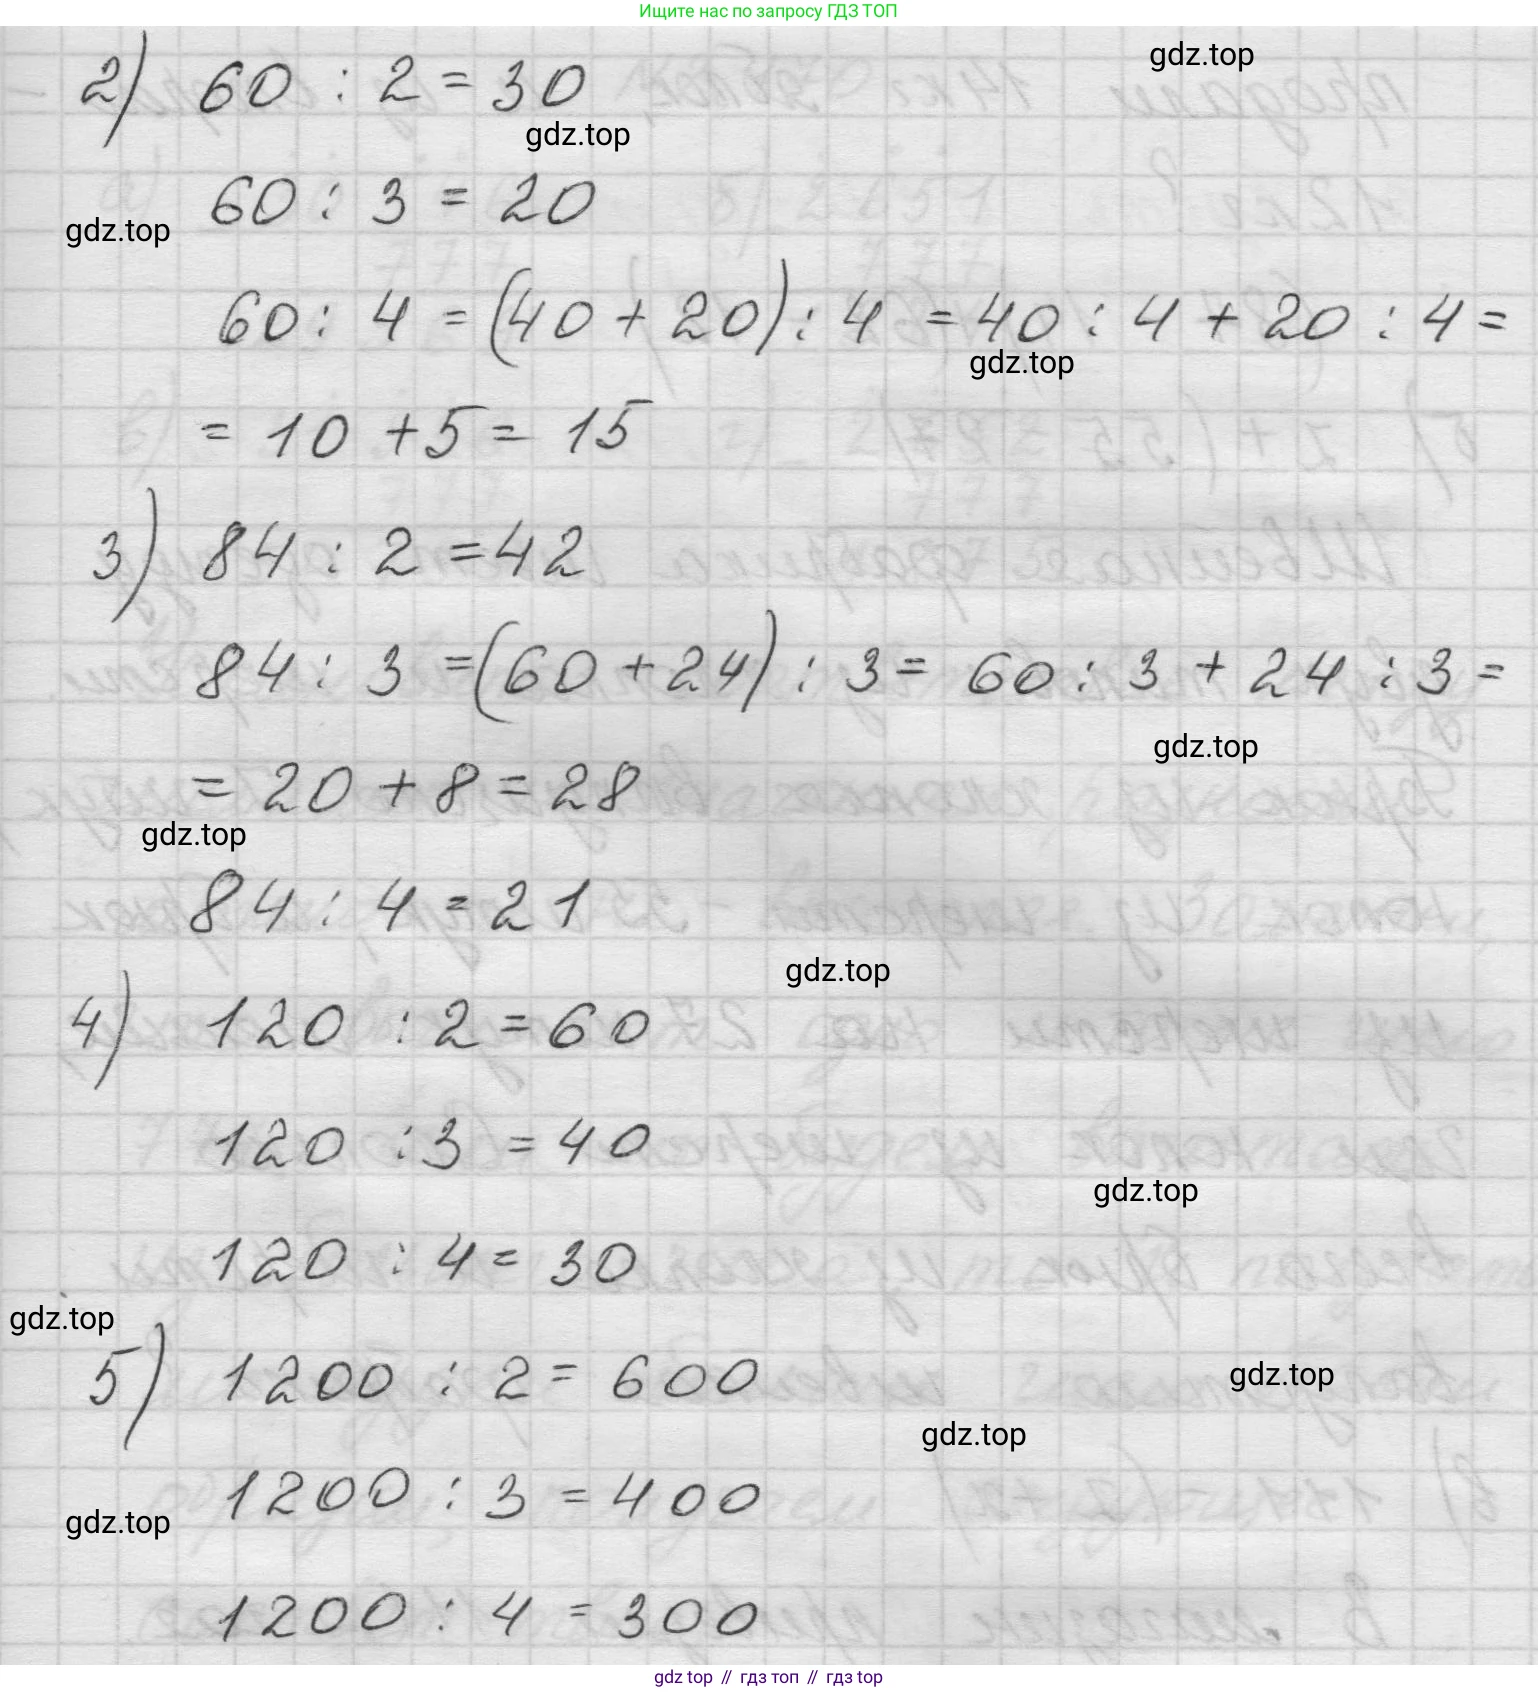 Ищите нас по запросу ГДЗ ТОП
gdz.top
2) 60 : 2 = 30
gdz.top
60 : 3 = 20
gdz.top
60 : 4 = (40 + 20) : 4 = 40 : 4 + 20 : 4 =
gdz.top
= 10 + 5 = 15
3) 84 : 2 = 42
84 : 3 = (60 + 24) : 3 = 60 : 3 + 24 : 3 =
gdz.top
= 20 + 8 = 28
gdz.top
84 : 4 = 21
gdz.top
4) 120 : 2 = 60
120 : 3 = 40
gdz.top
120 : 4 = 30
gdz.top
5) 1200 : 2 = 600
gdz.top
gdz.top
1200 : 3 = 400
gdz.top
1200 : 4 = 300
gdz top // гдз топ // гдз top